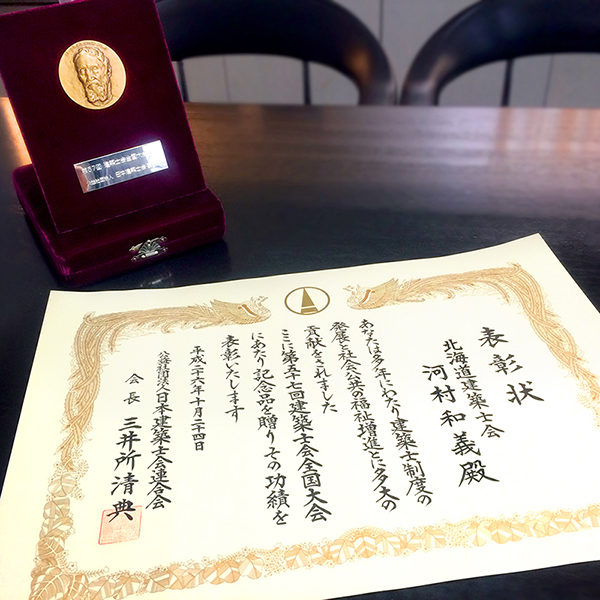 表彰状
北海道建築士会
河村和義殿
あなたは多年にわたり建築士制度の
発展と社会公共の福祉増進とに多大の
貢献をされました
ここに第五十七回建築士会全国大会
にあたり記念品を贈りその功績を
表彰いたします
平成二十六年十月二十四日
公益社団法人日本建築士会連合会
会長 三井所清典